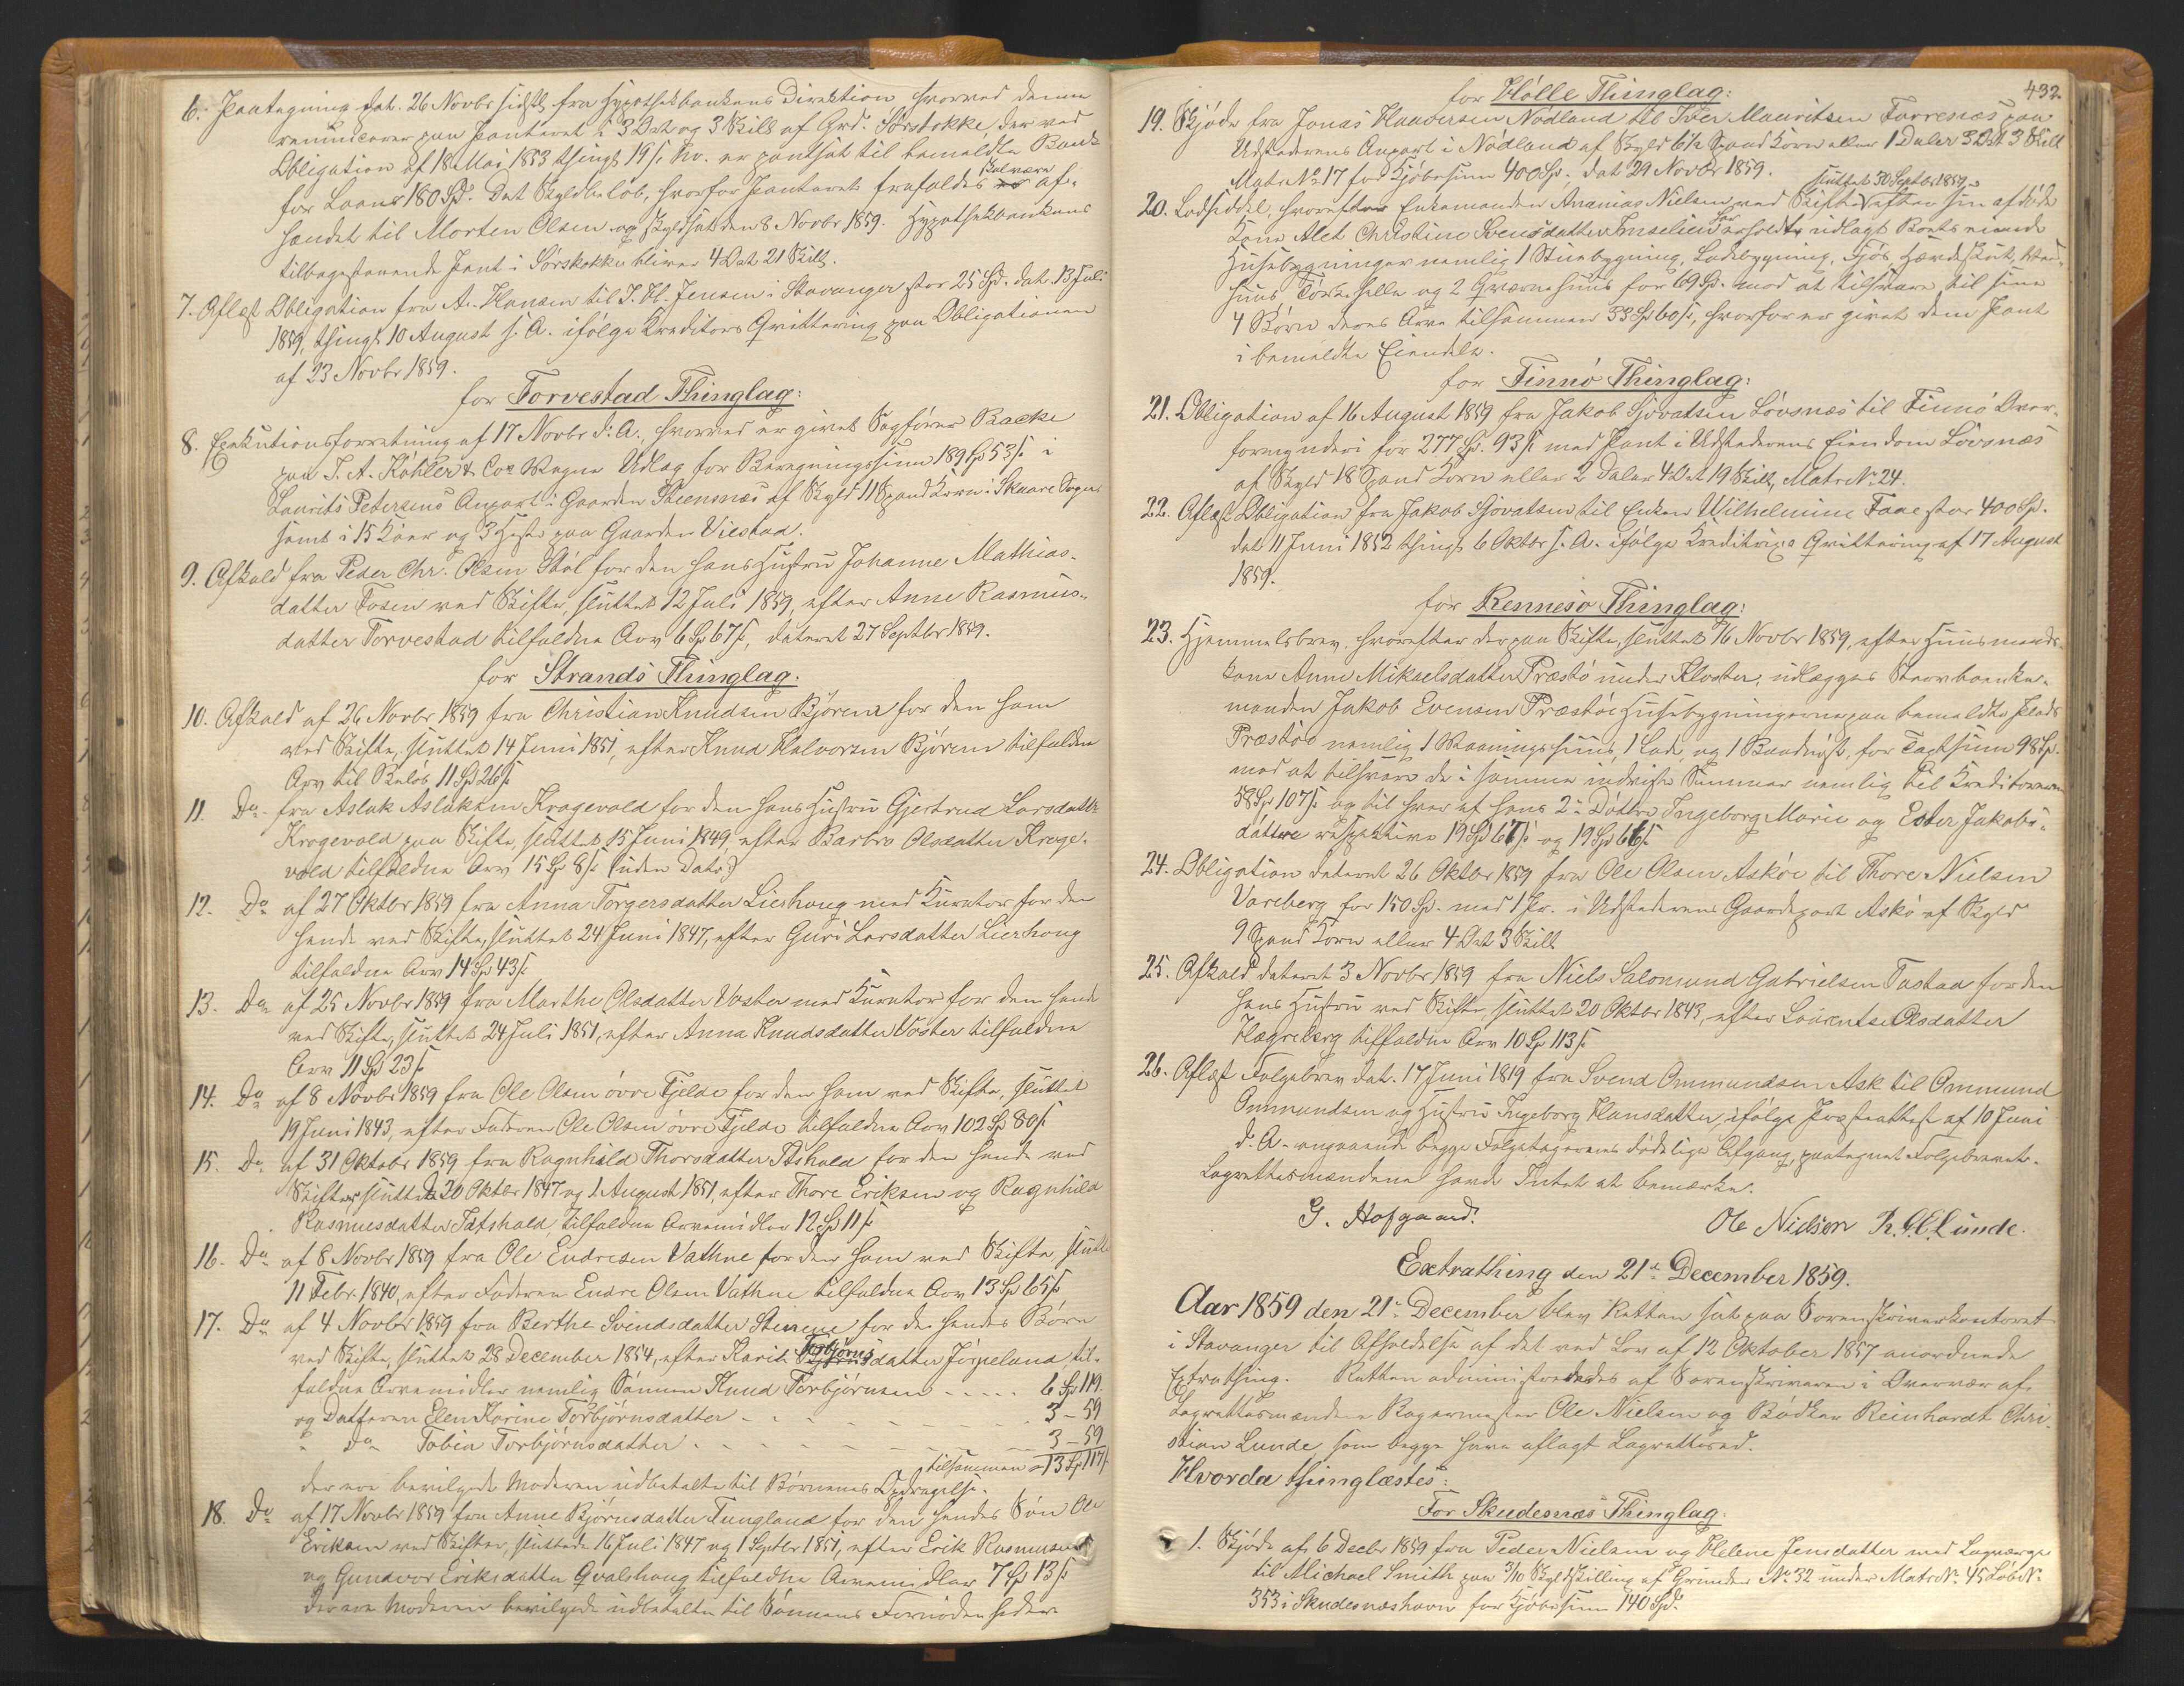 6. Paategning dat. 26 Novbr sidstl. fra Hypothekbankens Direktion hvorved denne
renuncerer paa Panteret i 3 Ort og 3 Skill af Grd. Sørstokke, der ved
Obligation af 18 Mai 1853 thingl. 19 s. M. er pantsat til bemeldte Bank
for Laan 180 Spd. Det Skyldbeløb, hvorfor Panteret frafaldes af-
hændet til Morten Olsen og skyldsat den 8 Novbr 1859. Hypothekbankens
tilbagestaaende Pant i Sørstokke bliver 4 Ort 21 Skill.
7. Aflæst Obligation fra A. Hansen til J. H. Jensen i Stavanger stor 25 Spd. dat. 13 Juli
1859, thingl. 10 August s. A. ifølge Kreditors Qvittering paa Obligationen
af 23 Novbr 1859.
for Torvestad Thinglag:
8. Exekutionsforretning af 17 Novbr d. A., hvorved er givet Sagfører Racke
paa J. A. Köhler & Co's Vegne Udlæg for Beregningssum 189 Sp 53 s. i
Laurits Petersens Anpart i Gaarden Steensnæs af Skyld 11 Spand Korn i Skaare Sogn
samt i 15 Køer og 3 Heste paa Gaarden Viestad.
9. Afkald fra Peder Chr. Olsen Støl for den hans Hustru Johanne Mathias-
datter Fosen ved Skifte, sluttet 12 Juli 1859, efter Anne Rasmus-
datter Torvestad tilfaldne Arv 6 Sp 67 s., dateret 27 Septbr 1859.
for Strands Thinglag.
10. Afkald af 26 Novbr 1859 fra Christian Knudsen Bjøreim for den ham
ved Skifte, sluttet 14 Juni 1851, efter Knud Halvorsen Bjøreim tilfaldne
Arv til Beløb 11 Sp 26 s.
11. Do fra Aslak Aslaksen Krogevold for den hans Hustru Gjertrud Larsdatter
Krogevold paa Skifte, sluttet 15 Juni 1849, efter Barbro Olsdatter Kroge-
vold tilfaldne Arv 15 Sp 8 s. (uden Dato)
12. Do af 27 Oktbr 1859 fra Anna Torgersdatter Lierhoug med Kurator for den
hende ved Skifte, sluttet 24 Juni 1847, efter Guri Larsdatter Lierhoug
tilfaldne Arv 14 Sp 43 s.
13. Do af 25 Novbr 1859 fra Marthe Olsdatter Voster med Kurator for den hende
ved Skifte, sluttet 24 Juli 1851, efter Anna Knudsdatter Voster tilfaldne
Arv 11 Sp 23 s.
14. Do af 8 Novbr 1859 fra Ole Olsen øvre Tjelde for den ham ved Skifte, sluttet
19 Juni 1843, efter Faderen Ole Olsen øvre Tjelde tilfaldne Arv 102 Sp 80 s.
15. Do af 31 Oktober 1859 fra Ragnhild Thorsdatter for den hende ved
Skifter, sluttede 20 Oktbr 1847 og 1 August 1851, efter Thore Eriksen og Ragnhild
Rasmusdatter tilfaldne Arvemidler 12 Sp 11 s.
16. Do af 8 Novbr 1859 fra Ole Endresen Vathne for den ham ved Skifte, sluttet
11 Febr. 1840, efter Faderen Endre Olsen Vathne tilfaldne Arv 13 Sp 65 s.
17. Do af 4 Novbr 1859 fra Berthe Svendsdatter for de hendes Børn
ved Skifte, sluttet 28 December 1854, efter Karin Torbjørnsdatter Jørpeland til-
faldne Arvemidler nemlig Sønnen Knud Torbjørnsen - - - - - 6 Sp 119.
og Datteren Elen Karine Torbjørnsdatter - - - - - - 3 - 59
" do Tobia Torbjørnsdatter. - - - - - - 3 - 59
tilsammen - 13 Sp 117 s.
der ere bevilgede Moderen udbetalte til Børnenes Opdragelse.
18. Do af 17 Novbr 1859 fra Anne Bjørnsdatter Tungland for den hendes Søn Ole
Eriksen ved Skifter, sluttede 16 Juli 1847 og 1 Septbr 1851, efter Erik Rasmusen
og Gundvor Eriksdatter Qvalshoug tilfaldne Arvemidler 7 Sp 13 s.
der ere Moderen bevilgede udbetalte til Sønnens Fornødenheder.
432.
for Hølle Thinglag:
19. Skjøde fra Jonas Haaversen Nødland til Iver Mauritsen Forresnæs paa
Udstederens Anpart i Nødland af Skyld 6 1/2 Spand Korn eller 1 Daler 3 Ort 3 Skill
Matr No 17 for Kjøbesum 400 Sp., dat 29 Novbr 1859.
sluttet 30 Septbr 1859
20. Lodseddel, hvorefter Enkemanden Ananias Nielsen ved Skifte efter sin afdøde
Kone Alet Christine Svensdatter har erholdt udlagt Boets eiende
Husebygninger nemlig 1 Stuebygning, Ladebygning, Fjøs,
huus, og 2 Qværnehuus for 69 Sp. mod at tilsvare til sine
4 Børn deres Arv tilsammen 33 Sp 60 s., hvorfor er givet dem Pant
i bemeldte Eiendele.
for Finnø Thinglag:
21. Obligation af 16 August 1859 fra Jakob Sjovatsen Løvsnæs til Finnø Over-
formynderi for 277 Sp. 93 s. med Pant i Udstederens Eiendom Løvsnæs
af Skyld 18 Spand Korn eller 2 Daler 4 Ort 19 Skill, Matr No 24.
22. Aflæst Obligation fra Jakob Sjovatsen til Enken Wilhelmine Faae stor 400 Sp.
dat 11 Juni 1852 thingl 6 Oktbr s. A. ifølge Kreditrix's Qvittering af 17 August
1859.
for Rennesø Thinglag:
23. Hjemmelsbrev, hvorefter der paa Skifte, sluttet 16 Novbr 1859, efter Huusmands-
kone Anne Mikaelsdatter Præstø under Kloster, udlægges Stervboenke-
manden Jakob Evensen Præstøe Husebygningerne paa bemeldte Plads
Præstøe nemlig 1 Vaaningshuus, 1 Lade, og 1 Baadnøst, for Taxtsum 98 Sp.
mod at tilsvare de i samme indviste Summer nemlig til Kreditorerne
58 Sp 107 s. og til hver af hans 2de Døttre Ingeborg Marie og Ester Jakobs-
døttre respektive 19 Sp 67 s. og 19 Sp 66 s.
24. Obligation dateret 26 Oktbr 1859 fra Ole Olsen Askøe til Thore Nielsen
Vareberg for 150 Sp. med 1 Pr. i Udstederens Gaardepart Askø af Skyld
9 Spand Korn eller 4 Ort 3 Skill
25. Afkald dateret 3 Novbr 1859 fra Niels Salomund Gabrielsen Tastad for den
hans Hustru ved Skifte, sluttet 20 Oktbr 1843, efter Laurentse Olsdatter
Hægreberg tilfaldne Arv 10 Sp 113 s.
26. Aflæst Folgebrev dat. 17 Juni 1819 fra Svend Ommundsen Ask til Ommund
Ommundsen og Hustru Ingeborg Hansdatter, ifølge Præsteattest af 10 Juni
d. A. angaaende begge Folgetagerens dødelige Afgang, paategnet Folgebrevet.
Lagrettesmændene havde Intet at bemærke.
G. Hofgaard.
Ole Nielsen R. C. Lunde.
Extrathing den 21de December 1859.
Aar 1859 den 21de December blev Retten sat paa Sorenskriverkontoret
i Stavanger til Afholdelse af det ved Lov af 12 Oktober 1857 anordnede
Extrathing. Retten administreredes af Sorenskriveren i Overvær af
Lagrettesmændene Bagermester Ole Nielsen og Bødker Reinhardt Chri-
stian Lunde, som begge have aflagt Lagretteed.
Hvorda thinglæstes:
For Skudesnæs Thinglag.
1. Skjøde af 6 Decbr 1859 fra Peder Nielsen og Helene Jensdatter med Lagværge
til Michael Smith paa 3/10 Skyldskilling af Grunden No 32 under Matr No. 45 Løb No.
353 i Skudesnæshavn for Kjøbesum 140 Spd.